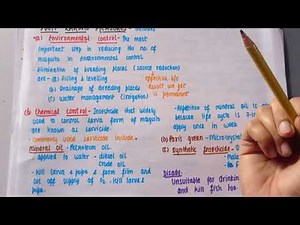 (a) Environmental control - The most
important step in reducing the no. of
maquits is environmental control
Elimination of breeding places (source reduction)
are - (a) filling & levelling
(b) Drainage of breeding places
(c) water management (irrigation)
effective b/c
result we get
is permanent
(b) Chemical control - Insecticide that widely
used to control larva form of maquits
are known as larvicide.
Commonly used larvicide include.
Mineral oil - Petroleum oil.
applied to water - diesel oil
Crude oil
Kill larva & pupa & form film and
cut off supply of O₂ - kill larvae &
pupa.
- Repetition of mineral oil is
because life cycle is 7-
apply once in week
(b) Paris green - Micro crystal
(c) Synthetic Insecticide -
Disadv.
Unsuitable for drinking
and kill fish